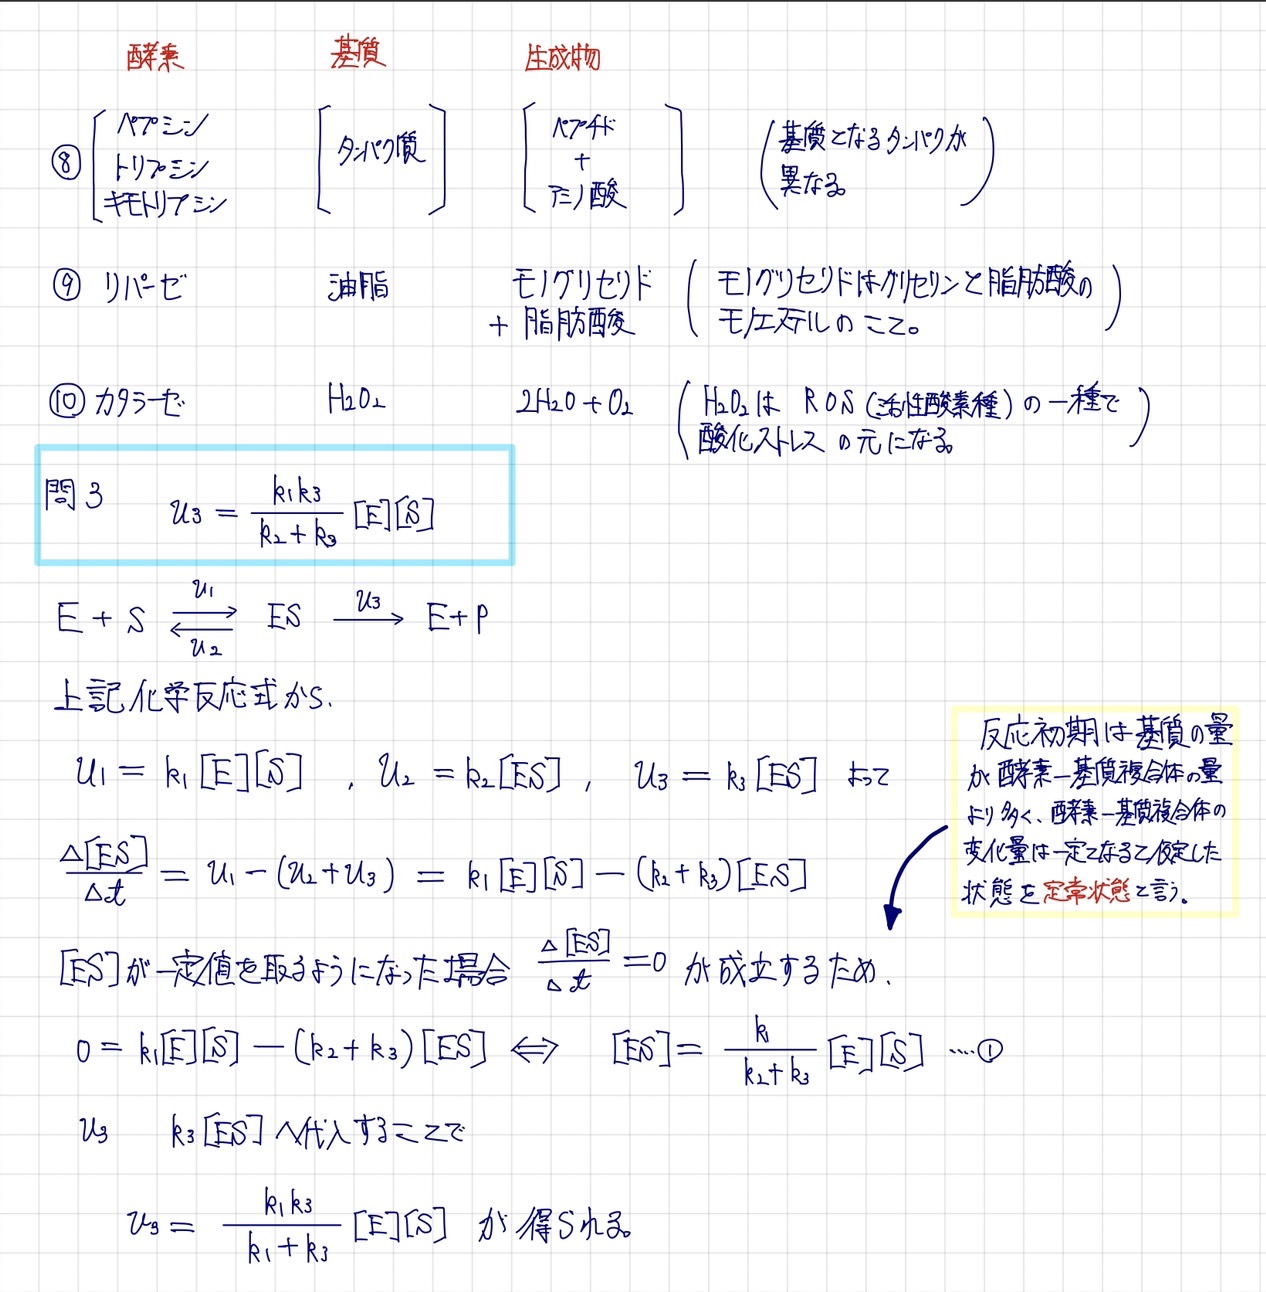 酵素 基質 生成物
⑧ ペプシン トリプシン キモトリプシン
タンパク質
ペプチド + アミノ酸
(基質となるタンパクが
異なる。)
⑨ リパーゼ 油脂 モノグリセリド (モノグリセリドはグリセリンと脂肪酸の
+ 脂肪酸 モノエステルのこと。)
⑩ カタラーゼ H₂O₂ 2H₂O + O₂ (H₂O₂は ROS (活性酸素種) の一種で
酸化ストレスの元になる。)
問3 v₃ = k₁k₃/(k₂+k₃) [E][S]
E + S ⇄ ES → E + P
v₁ v₂ v₃
上記化学反応式から、
v₁ = k₁[E][S] , v₂ = k₂[ES] , v₃ = k₃[ES] よって
Δ[ES]/Δt = v₁ − (v₂+v₃) = k₁[E][S] − (k₂+k₃)[ES]
反応初期は基質の量
が酵素−基質複合体の量
より多く、酵素−基質複合体の
変化量は一定となると仮定した
状態を定常状態と言う。
[ES]が一定値を取るようになった場合 Δ[ES]/Δt = 0 が成立するため、
0 = k₁[E][S] − (k₂+k₃)[ES] ⇔ [ES] = k₁/(k₂+k₃) [E][S] ····①
v₃ k₃[ES]へ代入することで
v₃ = k₁k₃/(k₁+k₃) [E][S] が得られる。